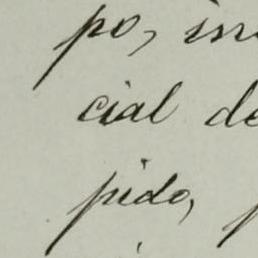 po,
cial de
pido,